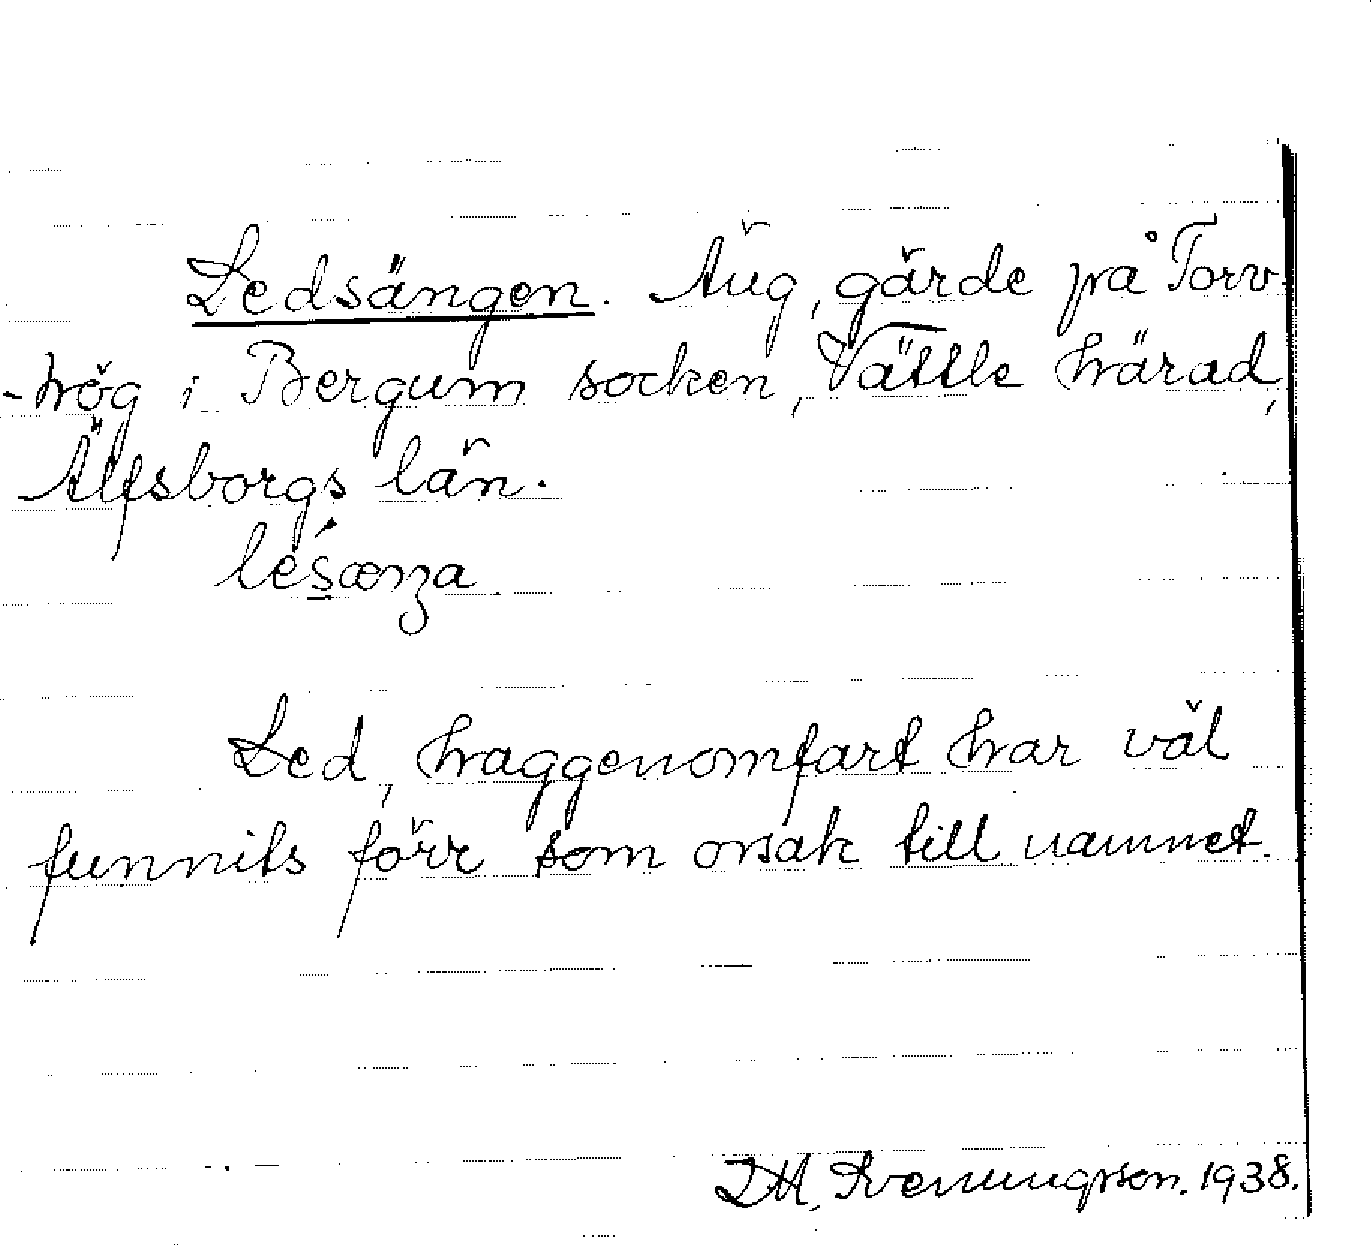 Ledsängen. Äng, gärde på Torv-
-hög i Bergum socken, Vättle härad,
Älfsborgs län.
Led, haggenomfart har väl
funnits förr som orsak till namnet.
D.H. Svenungsson. 1938.